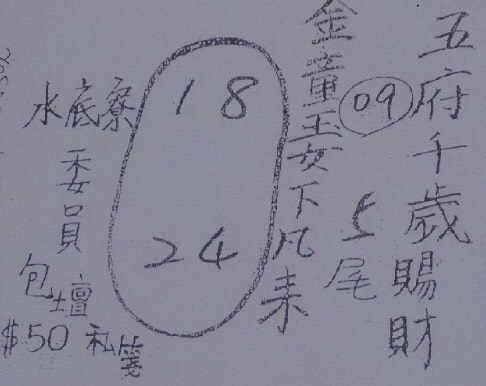 五府千歲賜財
金童玉女下凡来
09
5尾
18
24
水底寮
委員
包壇
$50 私箋